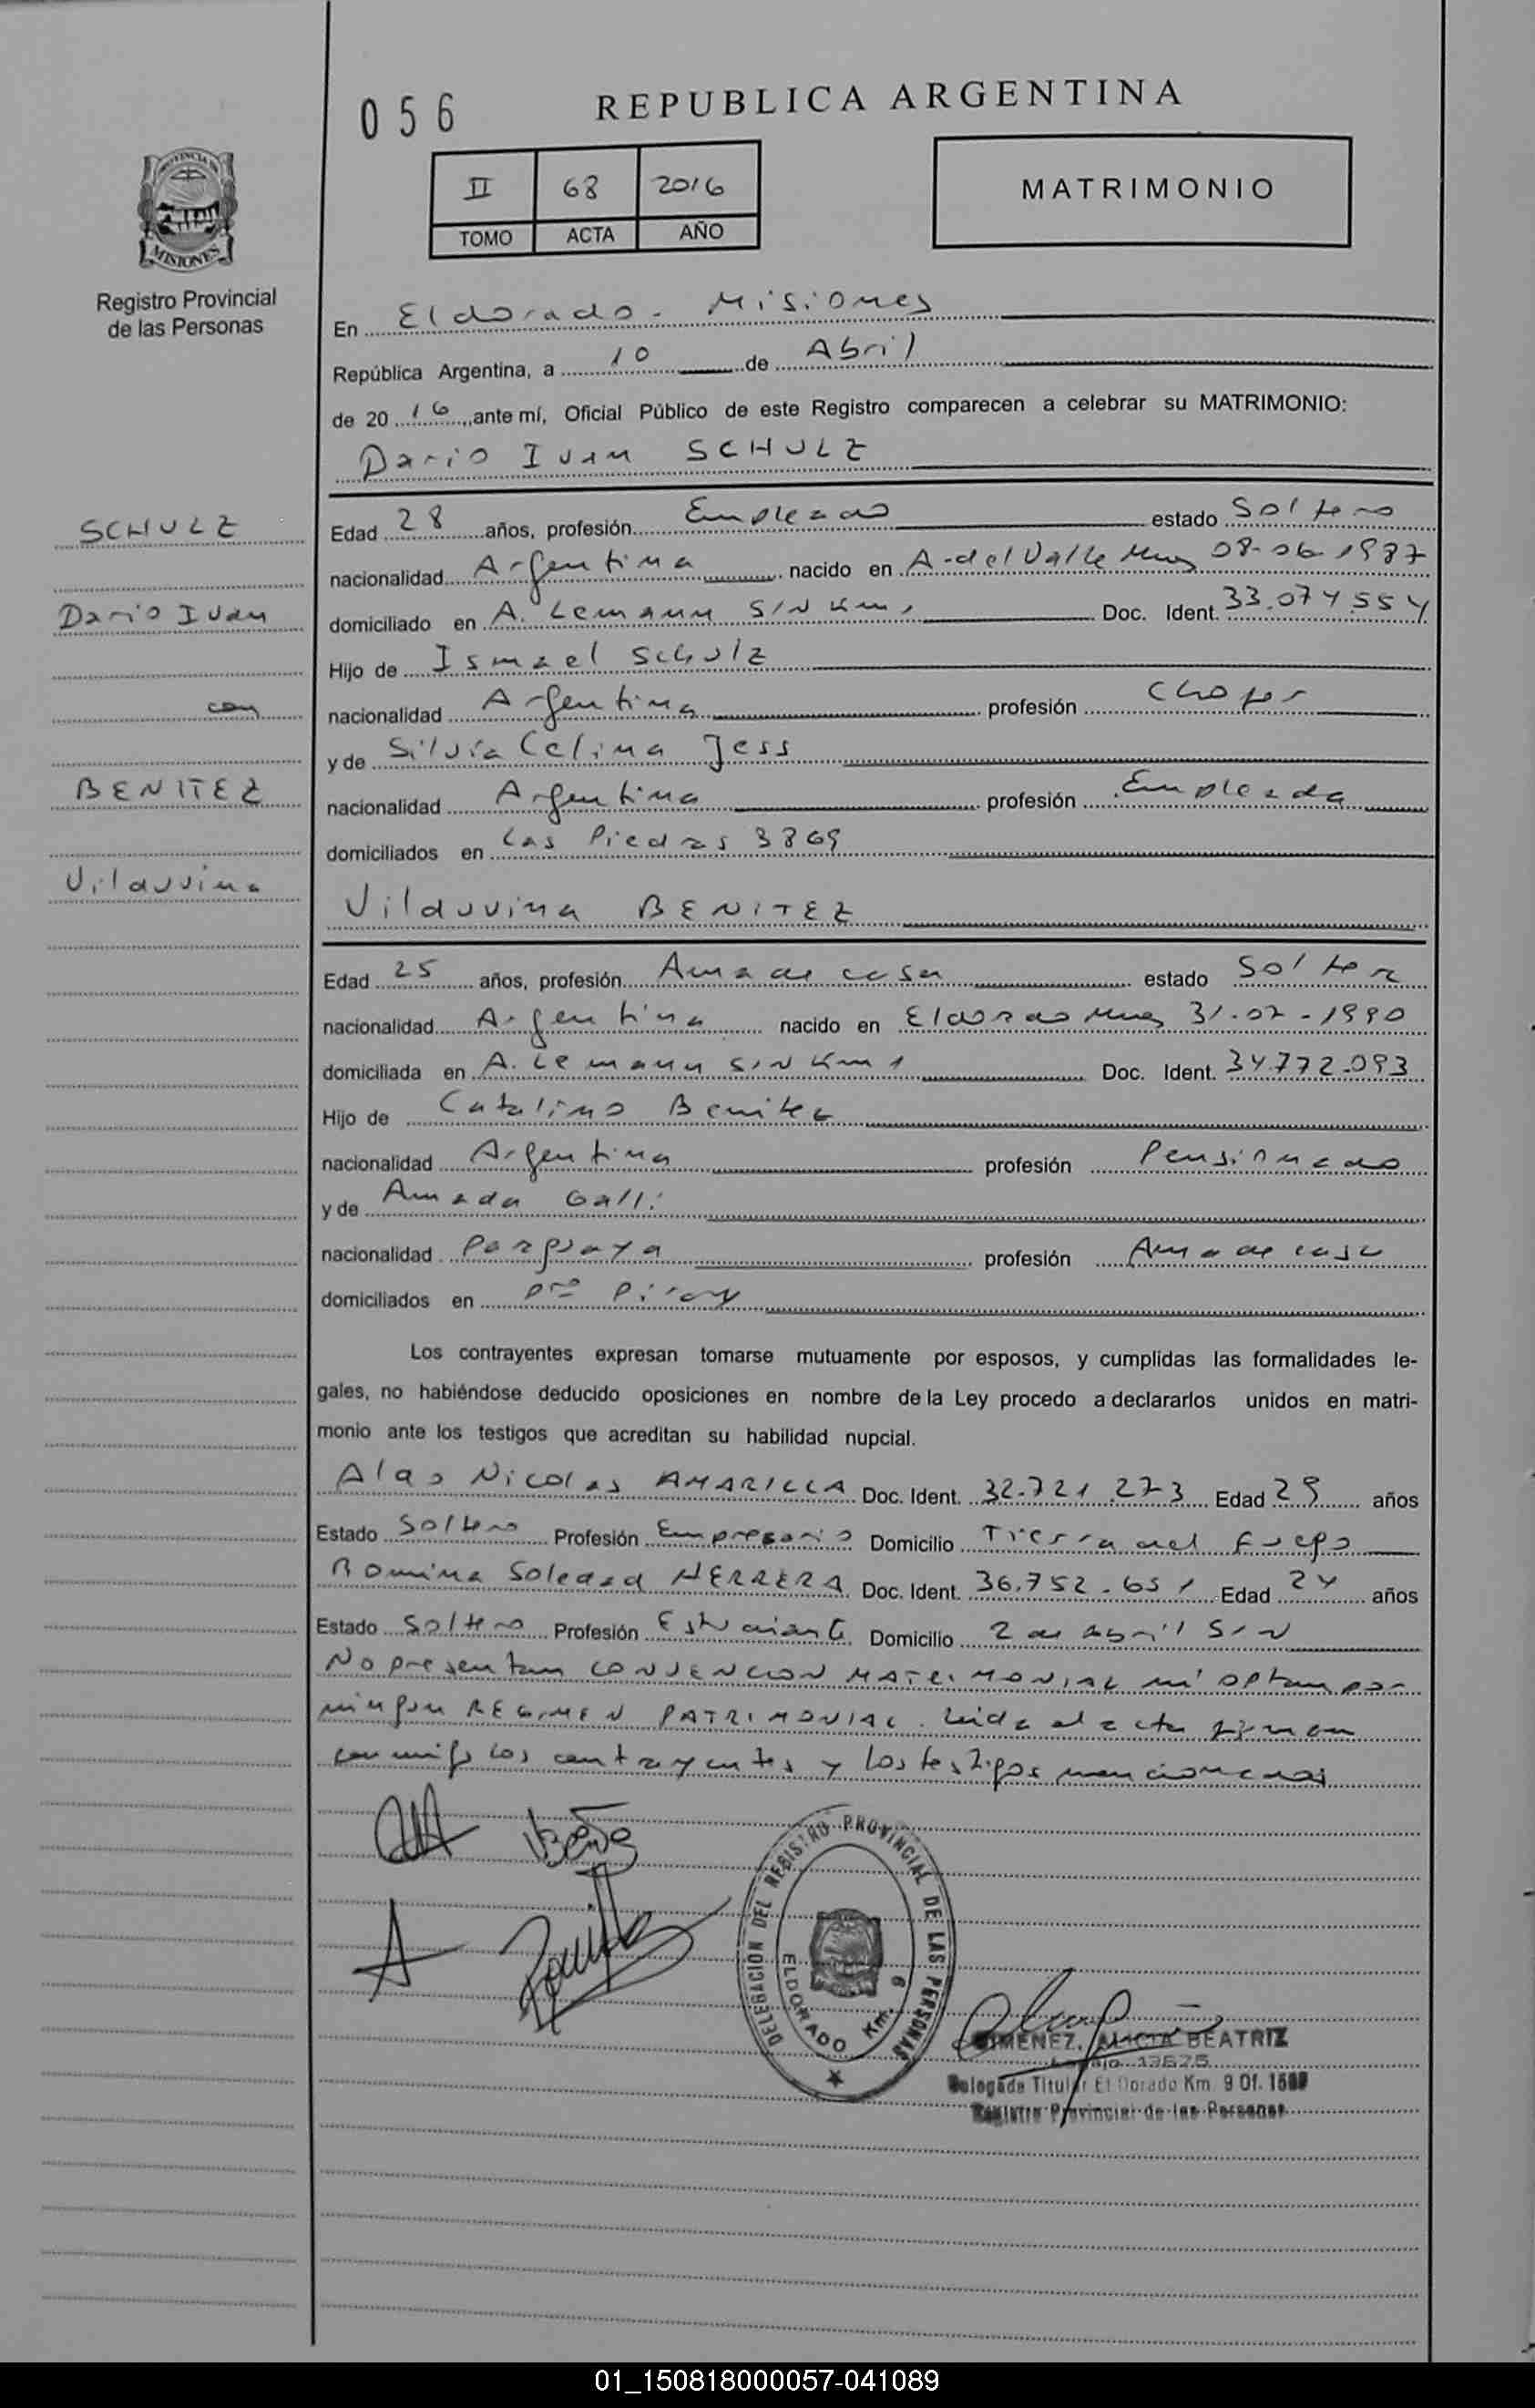 056
REPUBLICA ARGENTINA
II 68 2016
TOMO ACTA AÑO
MATRIMONIO
PROVINCIA DE
MISIONES
Registro Provincial
de las Personas
En Eldorado - Misiones
República Argentina, a 10 de Abril
de 20 16 ante mí, Oficial Público de este Registro comparecen a celebrar su MATRIMONIO:
Dario Ivan SCHULZ
SCHULZ
Dario Ivan
con
BENITEZ
Vilduvina
Edad 28 años, profesión Empleado estado Soltero
nacionalidad Argentina nacido en A. del Valle Mnes 08-06-1987
domiciliado en A. Lemann S/N Km 1 Doc. Ident. 33.074.554
Hijo de Ismael Schulz
nacionalidad Argentina profesión Chofer
y de Silvia Celina Jess
nacionalidad Argentina profesión Empleada
domiciliados en Las Piedras 3869
Vilduvina BENITEZ
Edad 25 años, profesión Ama de casa estado Soltera
nacionalidad Argentina nacido en Eldorado Mnes 31-07-1990
domiciliada en A. Lemann S/N Km 1 Doc. Ident. 34.772.093
Hijo de Catalino Benitez
nacionalidad Argentina profesión Pensionado
y de Amada Galli
nacionalidad Paraguaya profesión Ama de casa
domiciliados en Pto Piray
Los contrayentes expresan tomarse mutuamente por esposos, y cumplidas las formalidades le-
gales, no habiéndose deducido oposiciones en nombre de la Ley procedo a declararlos unidos en matri-
monio ante los testigos que acreditan su habilidad nupcial.
Nicolas AMARILLA Doc. Ident. 32.721.273 Edad 29 años
Estado Soltero Profesión Empresario Domicilio Tierra del Fuego
Romina Soledad HERRERA Doc. Ident. 36.752.651 Edad 24 años
Estado Soltero Profesión Estudiante Domicilio 2 de abril S/N
No presentan CONVENCION MATRIMONIAL ni optan por
ningun REGIMEN PATRIMONIAL. Leida el acta firman
conmigo los contrayentes y los testigos mencionados
DELEGACIÓN DEL REGISTRO PROVINCIAL DE LAS PERSONAS
ELDORADO Km. 9
GIMENEZ, ALICIA BEATRIZ
Legajo 13625
Delegada Titular El Dorado Km. 9 Of.
Registro Provincial de las Personas
01_150818000057-041089